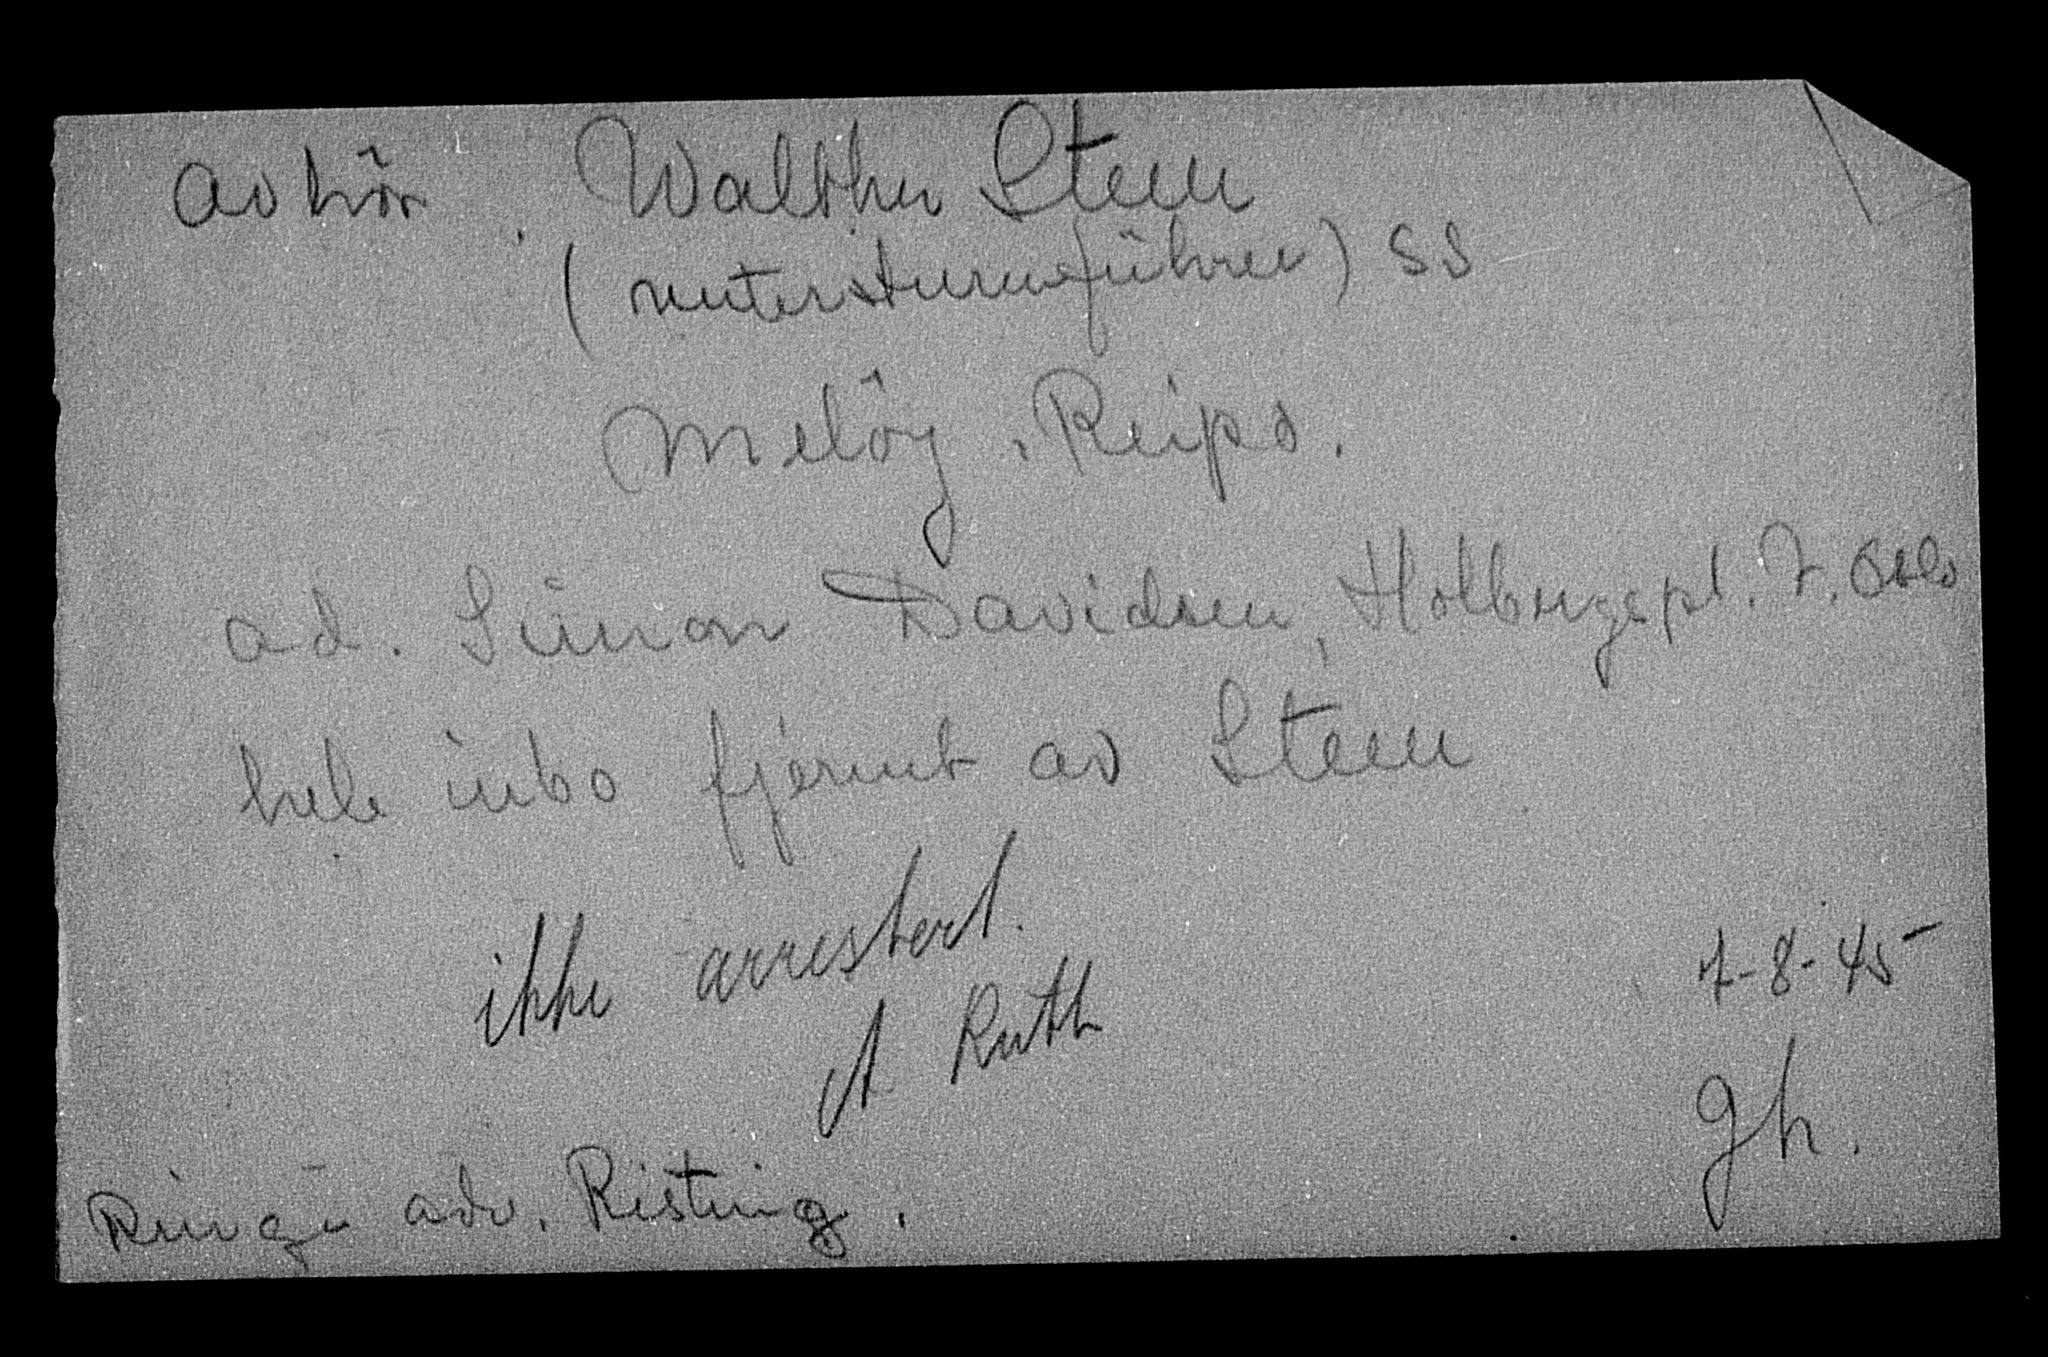 avhör Walther Stein
(untersturmführer) SS
Melöy, Reipo.
ad. Simon Davidsen, Holbergspl. 7. Oslo
hele inbo fjernet av Stein
ikke arrestert.
A Ruth
7-8-45
gh.
Ringe adv. Risting.